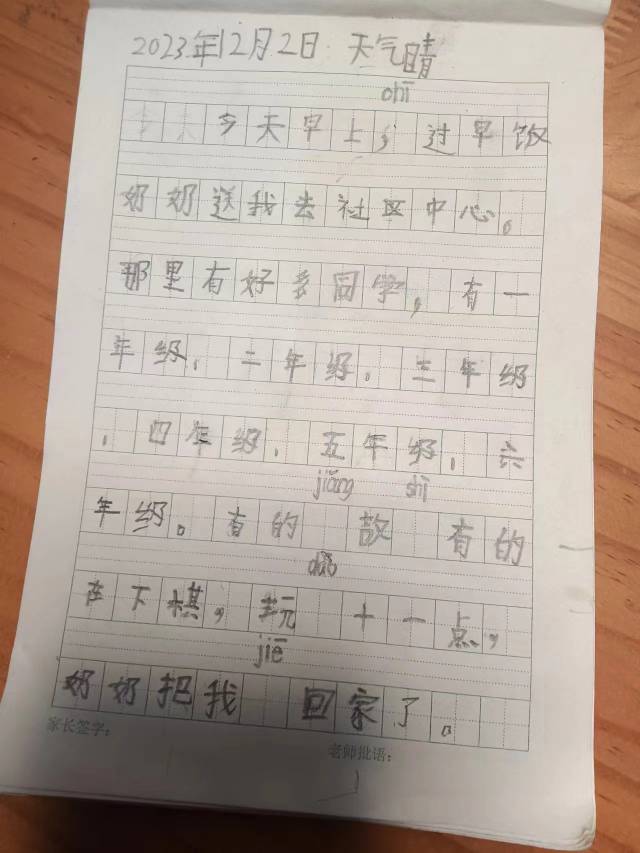 2023年12月2日 天气晴
chī
今天早上,过早饭
奶奶送我去社区中心。
那里有好多同学,有一
年级,二年级。三年级
,四年级,五年级,六
jiǎng shī
年级。有的 故 有的
dào
在下棋,玩 十一点,
jiē
奶奶把我 回家了。
家长签字:
老师批语: